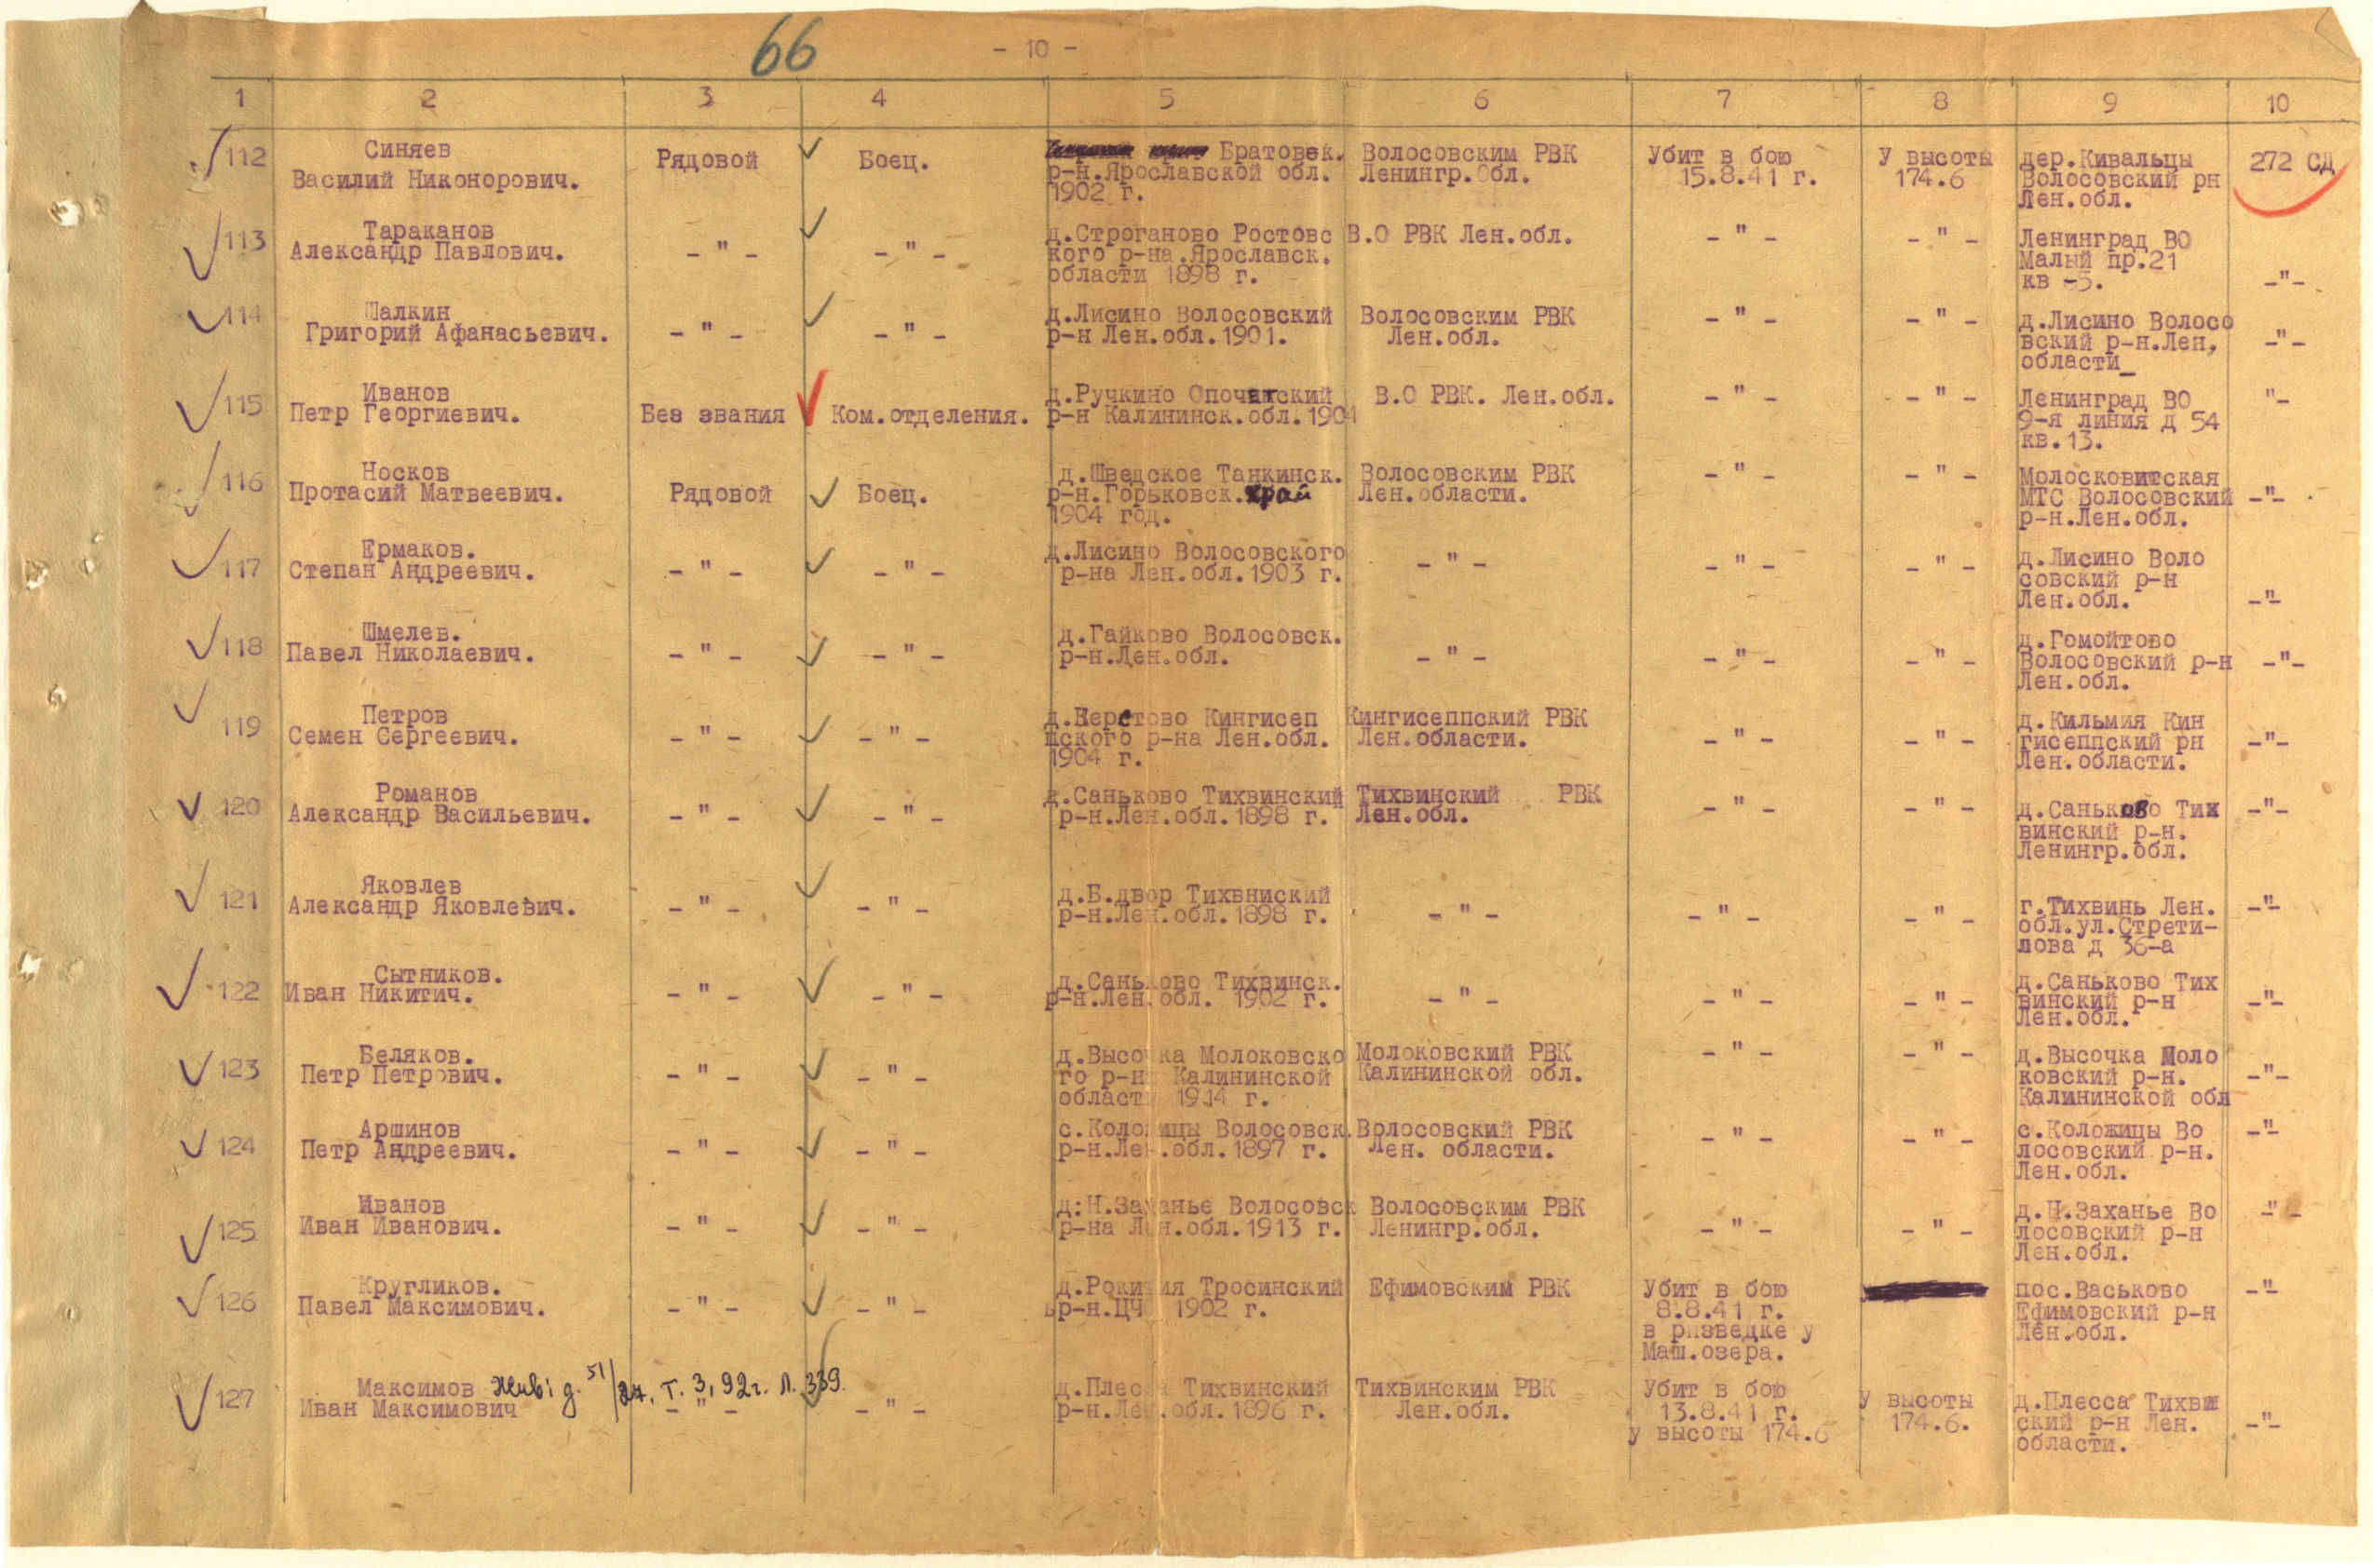 66
- 10 -
1 2 3 4 5 6 7 8 9 10
112
Синяев
Василий Никонорович.
Рядовой
Боец.
Братовек.
р-н.Ярославской обл.
1902 г.
Волосовским РВК
Ленингр.Обл.
Убит в бою
15.8.41 г.
У высоты
174.6
дер.Кивальцы
Волосовский рн
Лен.обл.
272 СД
113
Тараканов
Александр Павлович.
- " -
- " -
д.Строганово Ростовс
кого р-на.Ярославск.
области 1898 г.
В.О РВК Лен.обл.
- " -
- " -
Ленинград ВО
Малый пр.21
кв -5.
-"-
114
Шалкин
Григорий Афанасьевич.
- " -
- " -
д.Лисино Волосовский
р-н Лен.обл.1901.
Волосовским РВК
Лен.обл.
- " -
- " -
д.Лисино Волосо
вский р-н.Лен,
области_
-"-
115
Иванов
Петр Георгиевич.
Без звания
Ком.отделения.
д.Ручкино Опочетский
р-н Калининск.обл.1904
В.О РВК. Лен.обл.
- " -
- " -
Ленинград ВО
9-я линия д 54
кв.13.
"-
116
Носков
Протасий Матвеевич.
Рядовой
Боец.
д.Шведское Танкинск.
р-н.Горьковск.край
1904 год.
Волосовским РВК
Лен.области.
- " -
- " -
Молосковитская
МТС Волосовский
р-н.Лен.обл.
-"-
117
Ермаков.
Степан Андреевич.
- " -
- " -
д.Лисино Волосовского
р-на Лен.обл.1903 г.
- " -
- " -
- " -
д.Лисино Воло
совский р-н
Лен.обл.
-"-
118
Шмелев.
Павел Николаевич.
- " -
- " -
д.Гайково Волосовск.
р-н.Лен.обл.
- " -
- " -
- " -
д.Гомойтово
Волосовский р-н
Лен.обл.
-"-
119
Петров
Семен Сергеевич.
- " -
- " -
д.Керстово Кингисеп
пского р-на Лен.обл.
1904 г.
Кингисеппский РВК
Лен.области.
- " -
- " -
д.Кильмия Кин
гисеппский рн
Лен.области.
-"-
120
Романов
Александр Васильевич.
- " -
- " -
д.Саньково Тихвинский
р-н.Лен.обл.1898 г.
Тихвинский РВК
Лен.обл.
- " -
- " -
д.Саньково Тих
винский р-н.
Ленингр.обл.
-"-
121
Яковлев
Александр Яковлевич.
- " -
- " -
д.Б.двор Тихвниский
р-н.Лен.обл.1898 г.
- " -
- " -
- " -
г.Тихвинь Лен.
обл.ул.Стрети-
лова д 36-а
-"-
122
Сытников.
Иван Никитич.
- " -
- " -
д.Саньково Тихвинск.
р-н.Лен.обл. 1902 г.
- " -
- " -
- " -
д.Саньково Тих
винский р-н
Лен.обл.
-"-
123
Беляков.
Петр Петрович.
- " -
- " -
д.Высочка Молоковско
го р-на Калининской
области 1914 г.
Молоковский РВК
Калининской обл.
- " -
- " -
д.Высочка Моло
ковский р-н.
Калининской обл
-"-
124
Аршинов
Петр Андреевич.
- " -
- " -
с.Коложицы Волосовск.
р-н.Лен.обл.1897 г.
Волосовский РВК
Лен. области.
- " -
- " -
с.Коложицы Во
лосовский р-н.
Лен.обл.
-"-
125
Иванов
Иван Иванович.
- " -
- " -
д:Н.Заханье Волосовск
р-на Лен.обл.1913 г.
Волосовским РВК
Ленингр.обл.
- " -
- " -
д.Н.Заханье Во
лосовский р-н
Лен.обл.
-"-
126
Кругликов.
Павел Максимович.
- " -
- " -
Тросинский
р-н.ЦЧ 1902 г.
Ефимовским РВК
Убит в бою
8.8.41 г.
в разведке у
Маш.озера.
пос.Васьково
Ефимовский р-н
Лен.обл.
-"-
127
Максимов Жив: д. 51/84. Т. 3, 92г. л. 339.
Иван Максимович
- " -
- " -
д.Плесса Тихвинский
р-н.Лен.обл.1896 г.
Тихвинским РВК
Лен.обл.
Убит в бою
13.8.41 г.
у высоты 174.6
у высоты
174.6.
д.Плесса Тихвин
ский р-н Лен.
области.
-"-